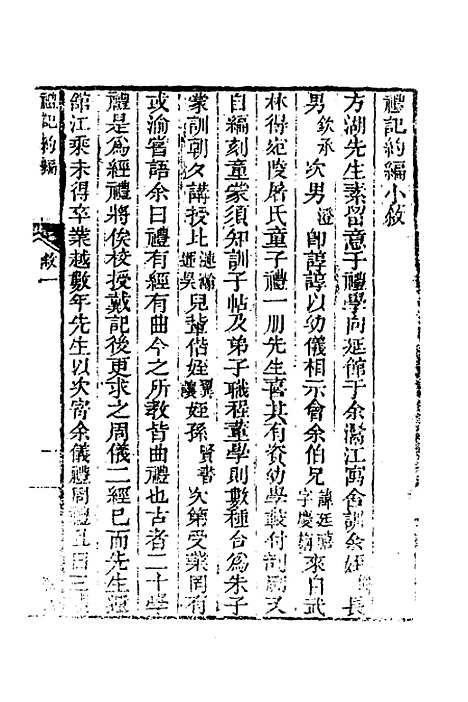 禮記約編小敘
方湖先生素留意于禮學向延館于余漪江寓舍訓余姪長
男欽承次男澄卽諄諄以幼儀相示會余伯兄諱廷字慶來自武
林得寧陵屠氏童子禮一冊先生喜其有資幼學叢付剞劂又
自編刻童蒙須知訓子帖及弟子職程董學則數種合爲朱子
蒙訓朝夕講授比兒輩偕姪翼讓姪孫賢書次第受業罔有
或渝嘗語余曰禮有經有曲今之所敎皆曲禮也古者二十學
禮是爲經禮將俟校授戴記後更求之周儀二經已而先生經
館江乘未得卒業越數年先生以次寄余儀禮周禮五
禮記約編
敘一